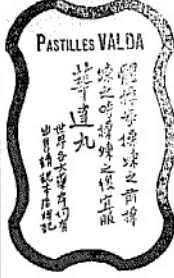 PASTILLES VALDA
體操每操練之前操
練之時操練之後宜服
華達丸
世界各大藥房均有
出售請認本店牌記